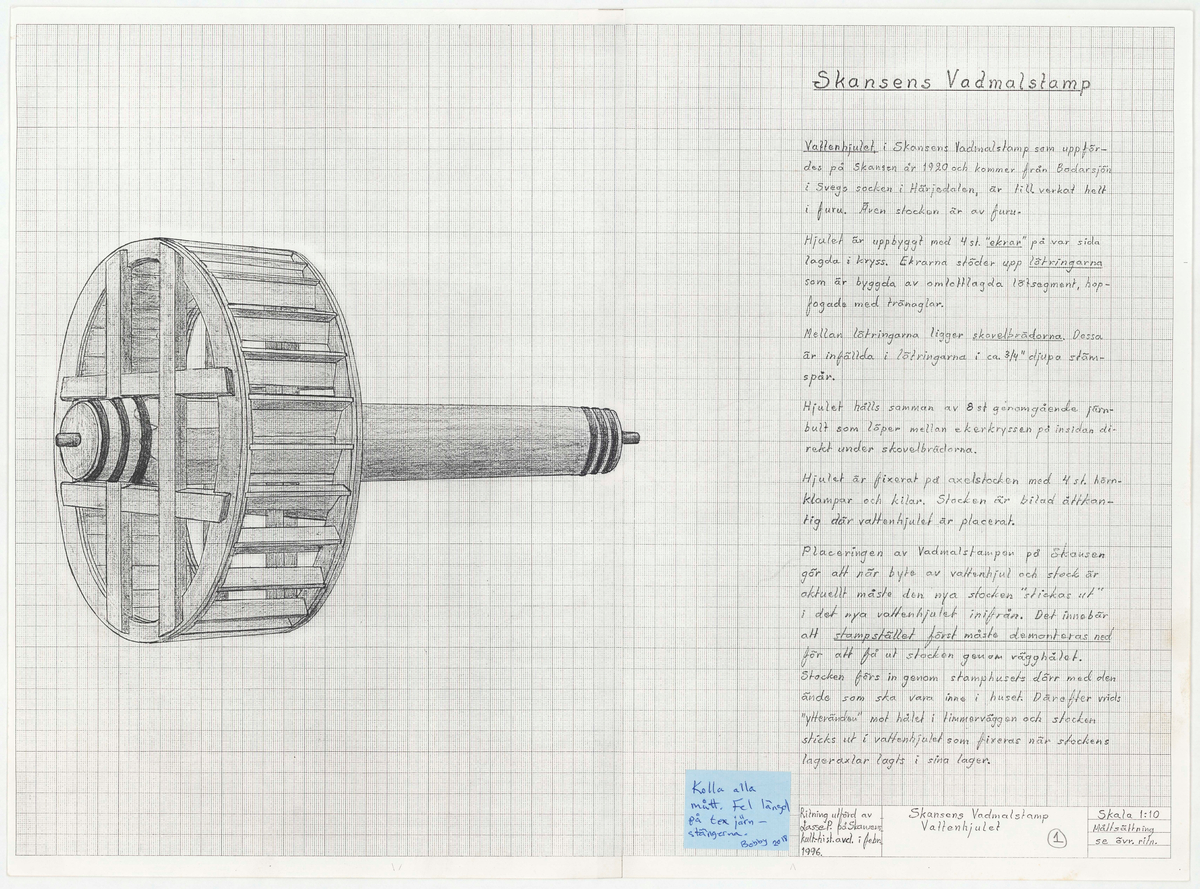 Skansens Vadmalstamp
Vattenhjulet i Skansens Vadmalstamp som uppför-
des på Skansen år 1920 och kommer från Badarsjön
i Svegs socken i Härjedalen, är tillverkat helt
i furu. Även stocken är av furu.
Hjulet är uppbyggt med 4 st. "ekrar" på var sida
lagda i kryss. Ekrarna stöder upp lötringarna
som är byggda av omlottlagda lötsegment, hop-
fogade med tränaglar.
Mellan lötringarna ligger skovelbrädorna. Dessa
är infällda i lötringarna i ca. 3/4" djupa stäm-
spår.
Hjulet hålls samman av 8 st genomgående järn-
bult som löper mellan ekerkryssen på insidan di-
rekt under skovelbrädorna.
Hjulet är fixerat på axelstocken med 4 st. hörn-
klampar och kilar. Stocken är bilad åttkan-
tig där vattenhjulet är placerat.
Placeringen av Vadmalstampen på Skansen
gör att när byte av vattenhjul och stock är
aktuellt måste den nya stocken "stickas ut"
i det nya vattenhjulet inifrån. Det innebär
att stampstället först måste demonteras ned
för att få ut stocken genom vägghålet.
Stocken förs in genom stamphusets dörr med den
ände som ska vara inne i huset. Därefter vrids
"ytteränden" mot hålet i timmerväggen och stocken
sticks ut i vattenhjulet som fixeras när stockens
lageraxlar lagts i sina lager.
Kolla alla
mått. Fel längd
på tex järn-
stängerna.
Bobby 2018
Ritning utförd av
Lasse P. på Skansens
kult.hist.avd. i febr.
1996.
Skansens Vadmalstamp
Vattenhjulet
1
Skala 1:10
Måttsättning
se övr. ritn.